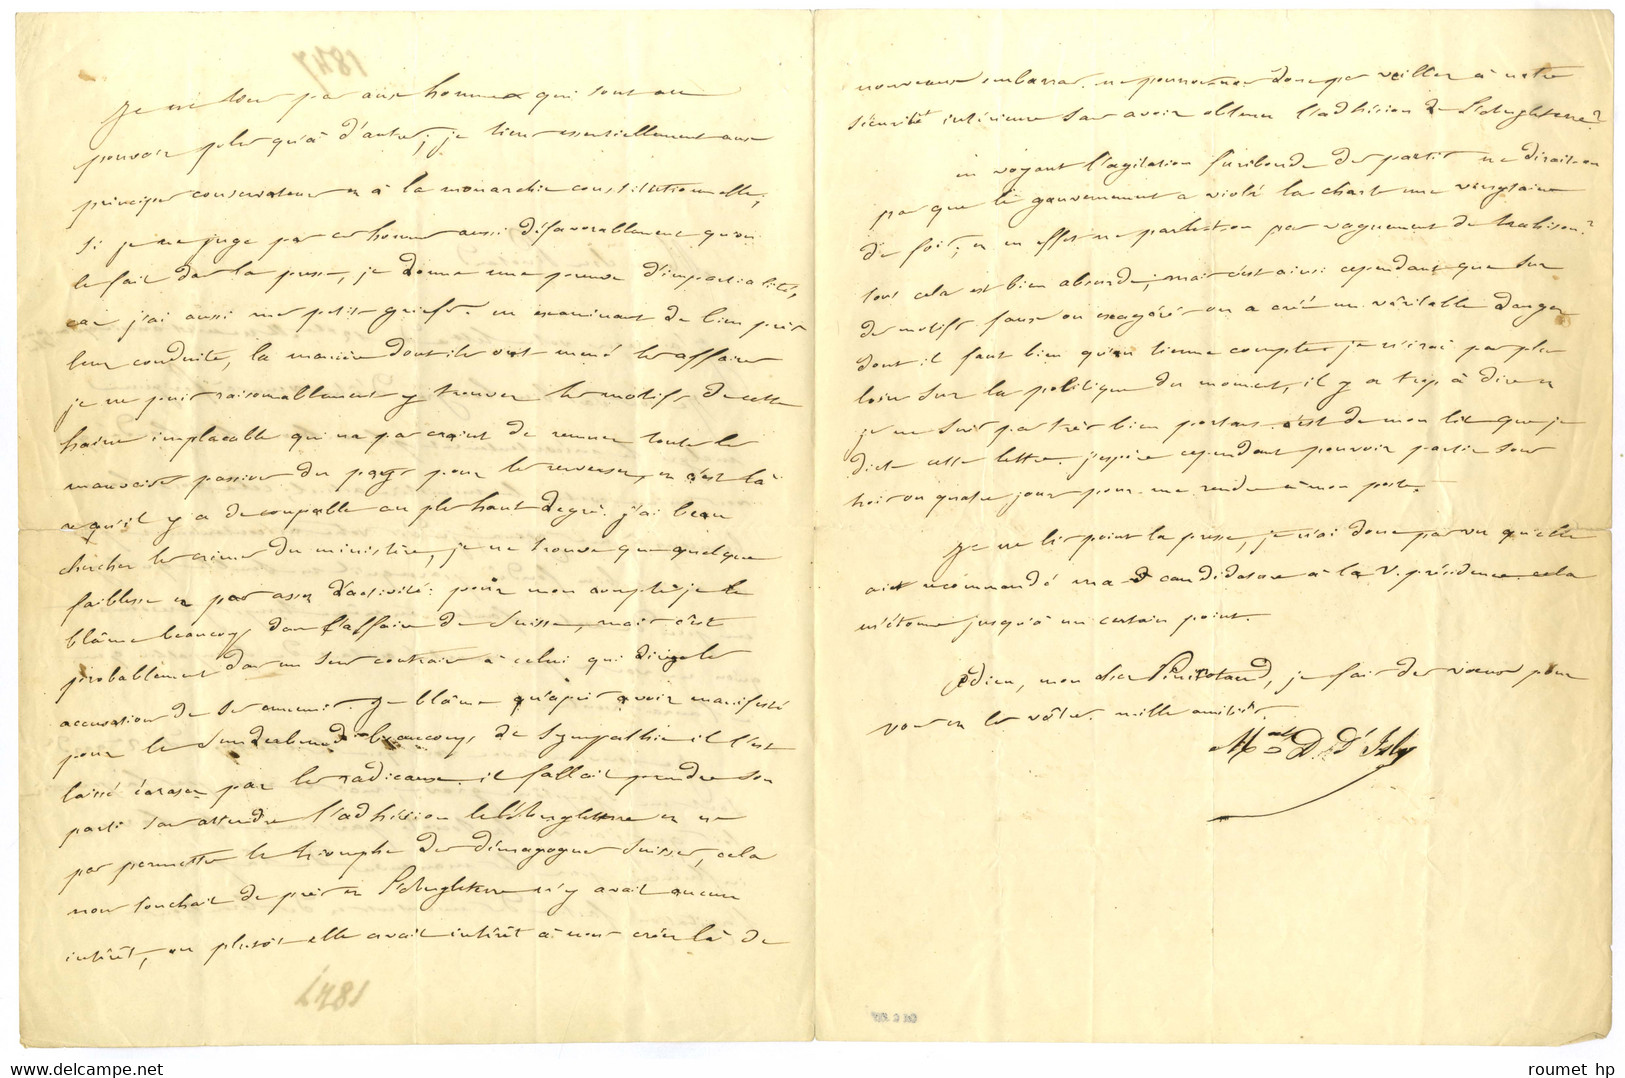 1847
Je ne tiens pas aux hommes qui sont au
pouvoir plus qu'à d'autres; je tiens essentiellement aux
principes conservateurs et à la monarchie constitutionnelle;
si je ne juge pas ces hommes aussi défavorablement qu'on
le fait dans la presse, je donne une preuve d'impartialité,
car j'ai aussi mes petits griefs. en examinant de bien près
leur conduite, la manière dont ils ont mené les affaires
je ne puis raisonnablement y trouver les motifs de cette
haine implacable qui ne pas craint de remuer toutes les
mauvaises passions du pays pour les renverser, et c'est là
ce qu'il y a de coupable au plus haut degré. j'ai beau
chercher les crimes du ministère, je ne trouve que quelque
faiblesse et pas assez d'activité: pour mon compte je le
blâme beaucoup dans l'affaire de Suisse, mais c'est
probablement dans un sens contraire à celui qui dirige les
accusations de ses ennemis. Je blâme qu'après avoir manifesté
pour le Sunderbund beaucoup de sympathie il l'est
laissé écraser par les radicaux. il fallait prendre son
parti sans attendre l'adhésion de l'Angleterre et ne
pas permettre le triomphe des démagogues Suisses, cela
nous touchait de près et l'Angleterre n'y avait aucun
intérêt, ou plutôt elle avait intérêt à nous créer là de
1847
nouveaux embarras. ne pourrons nous donc pas veiller à notre
sécurité intérieure sans avoir obtenu l'adhésion de l'Angleterre?
en voyant l'agitation furibonde des partis ne dirait-on
pas que le gouvernement a violé la chart une vingtaine
de fois; et en effet ne parlet-on pas vaguement de trahison?
tout cela est bien absurde; mais c'est ainsi cependant que sur
des motifs faux ou exagérés on a créé un véritable danger
dont il faut bien qu'on tienne compte. je n'irai pas plus
loin sur la politique du moment, il y a trop à dire et
je ne suis pas très bien portant. c'est de mon lit que je
dicte cette lettre. j'espère cependant pouvoir partir sous
trois ou quatre jours pour me rendre à mon poste.
Je ne lis point la presse, je n'ai donc pas vu qu'elle
ait recommandé ma candidature à la V. présidence. cela
m'étonne jusqu'à un certain point.
Adieu, mon cher, je fais des voeux pour
vous et les vôtres. mille amitiés.
Mal D. d'Isly
roumet hp